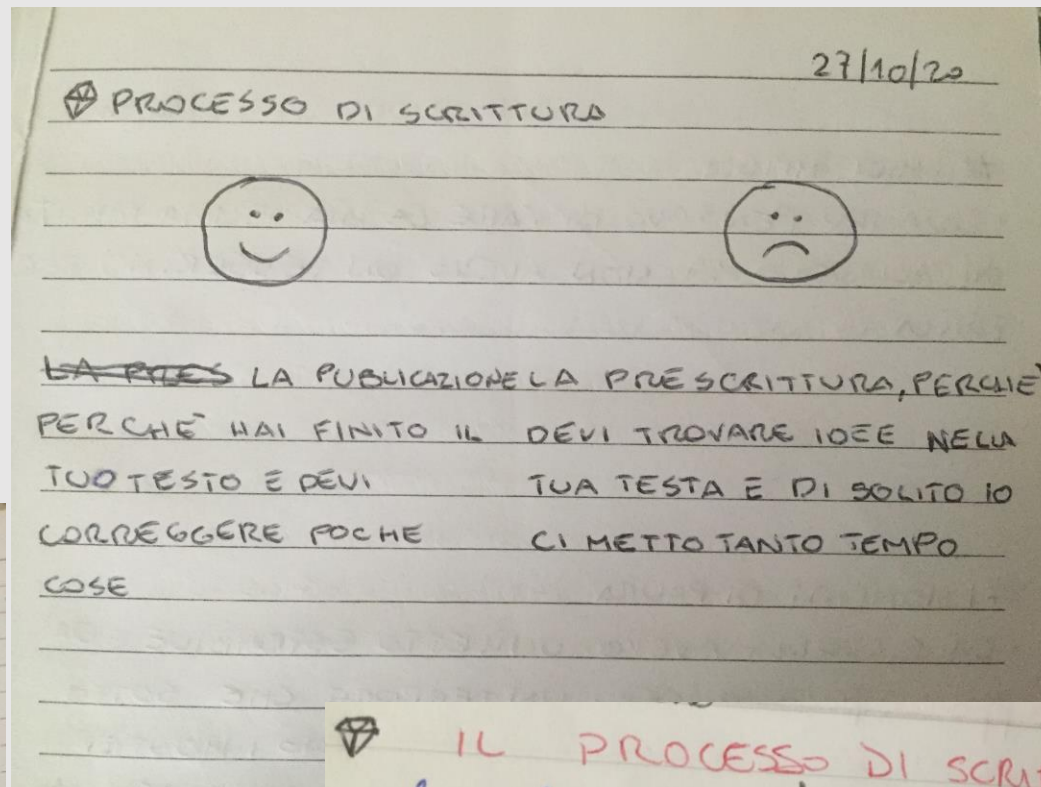 27/10/20
PROCESSO DI SCRITTURA
LA PRES LA PUBLICAZIONE
PERCHÈ HAI FINITO IL
TUO TESTO E DEVI
CORREGGERE POCHE
COSE
LA PRESCRITTURA, PERCHÈ
DEVI TROVARE IDEE NELLA
TUA TESTA E DI SOLITO IO
CI METTO TANTO TEMPO
IL PROCESSO DI SCRIT